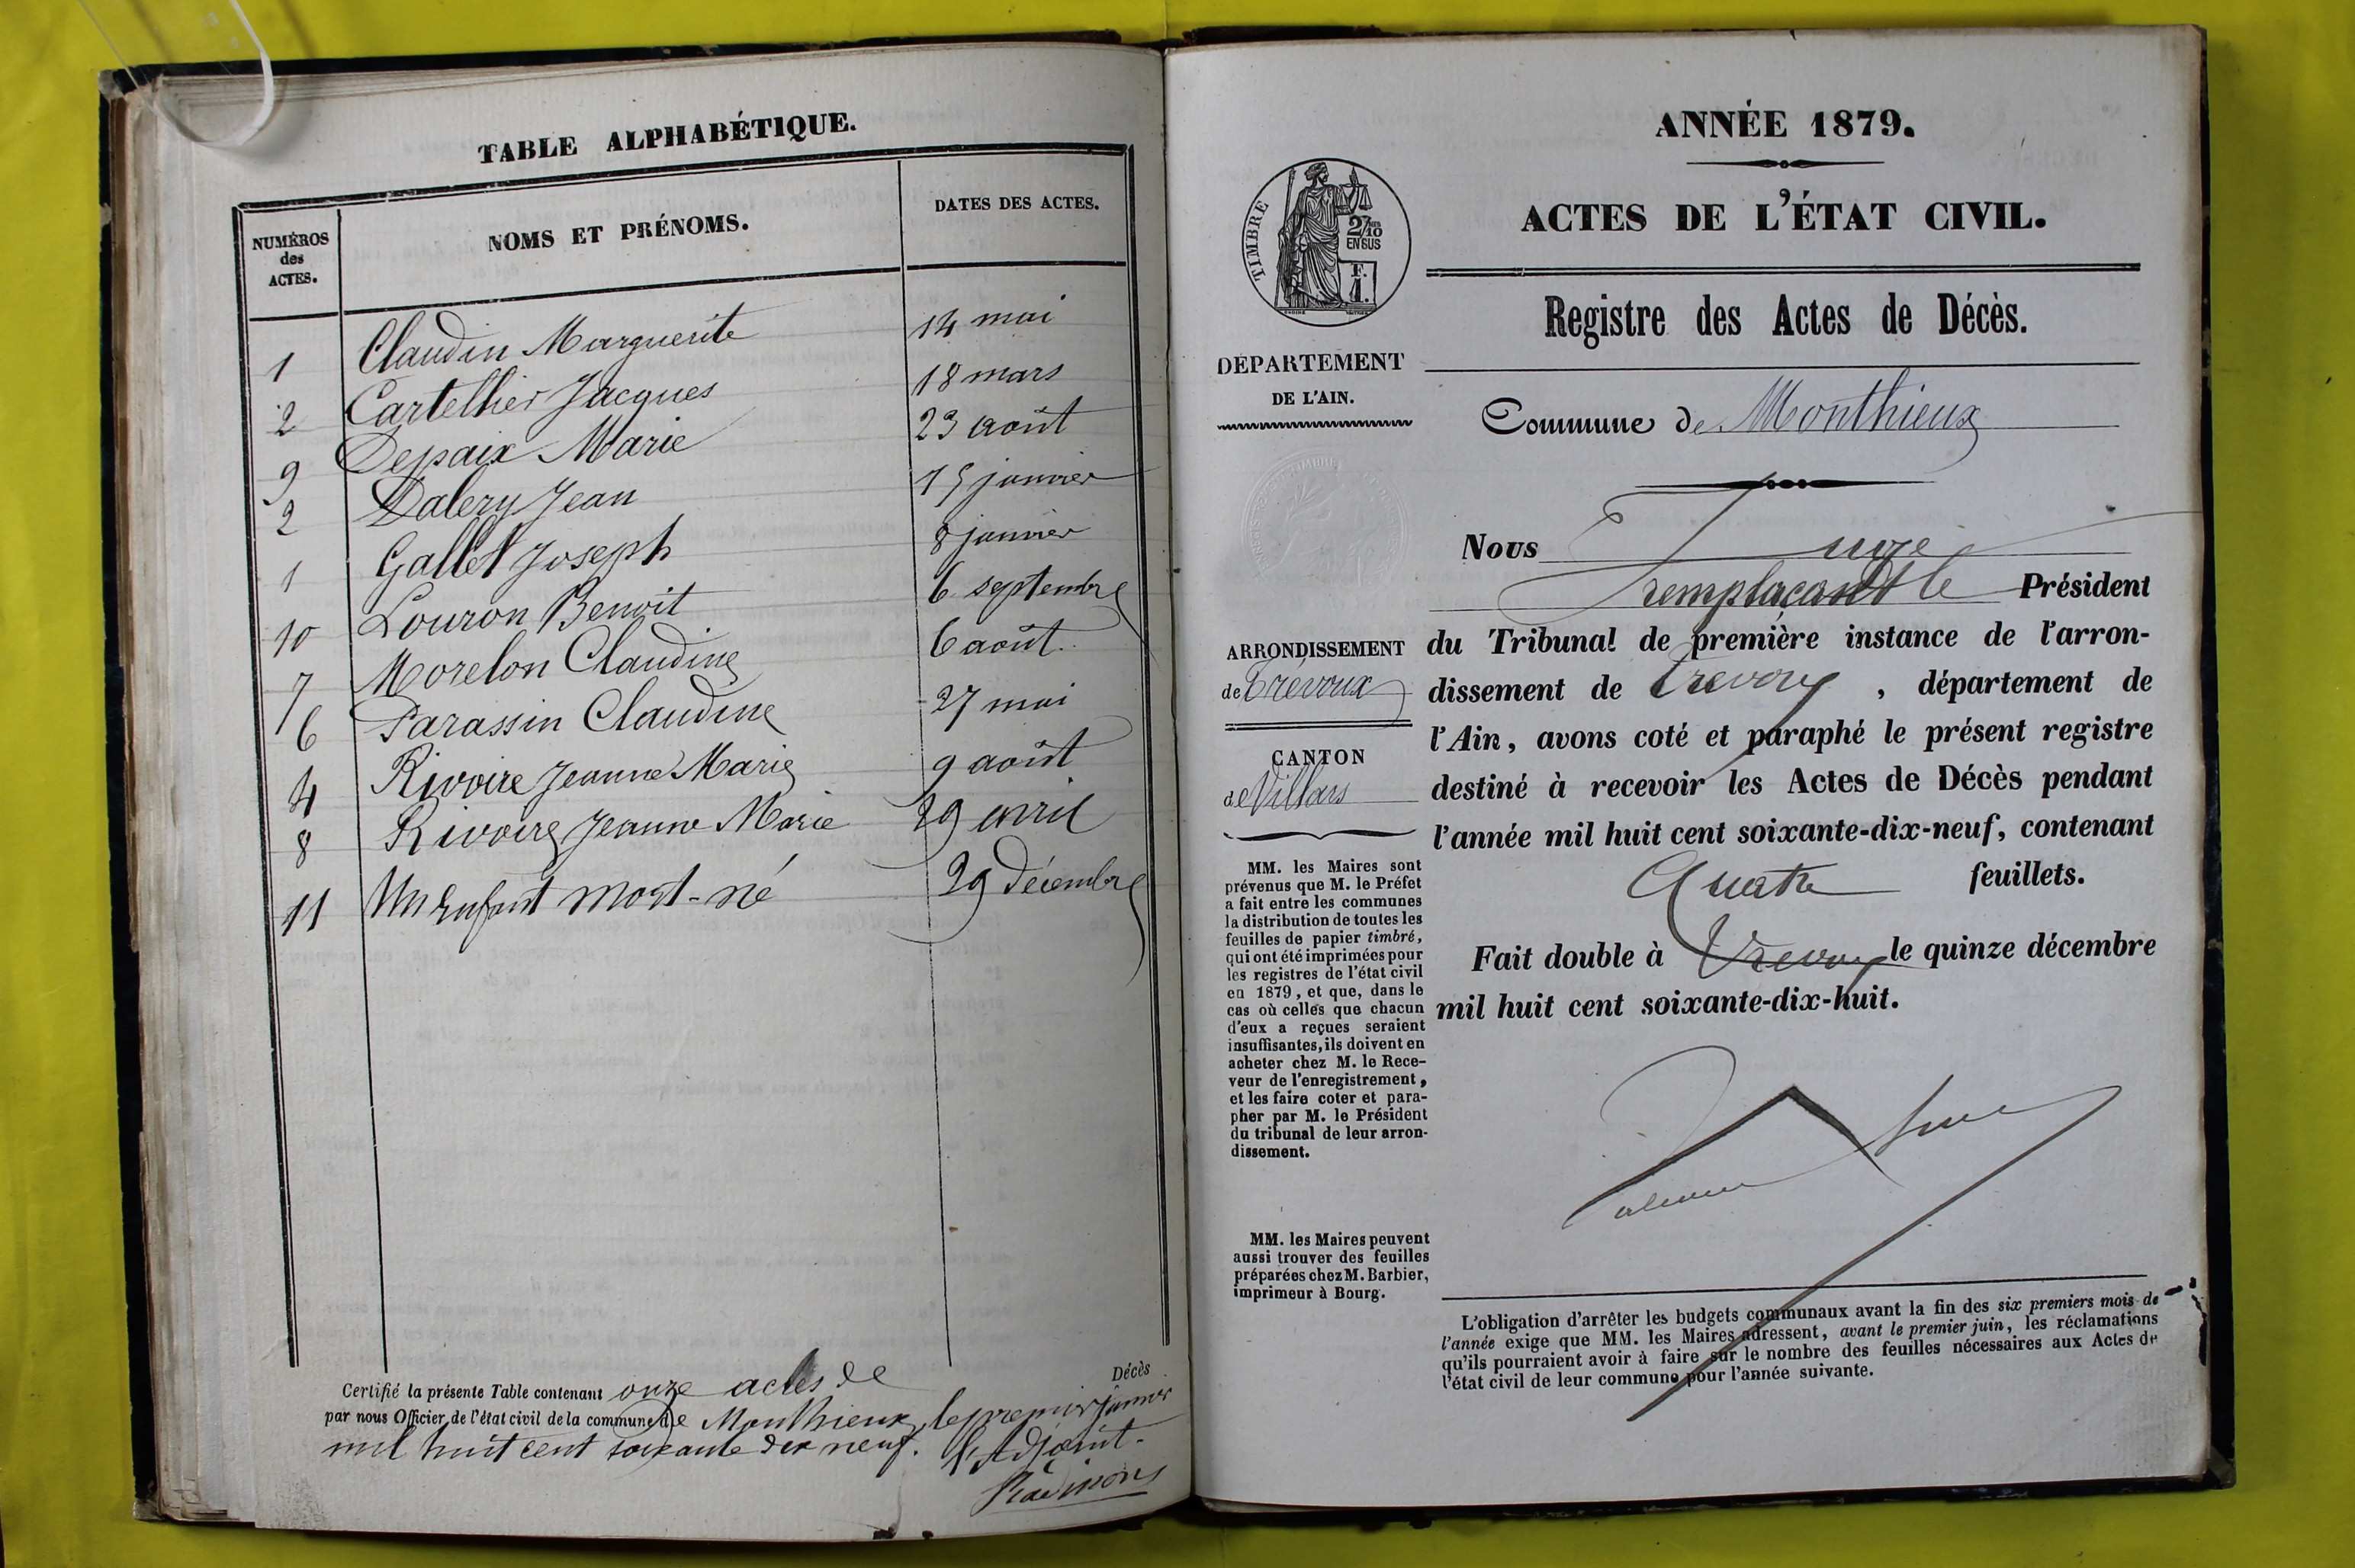 TABLE ALPHABÉTIQUE.
NUMÉROS
des
ACTES.
NOMS ET PRÉNOMS.
DATES DES ACTES.
1 Claudin Marguerite 14 mai
2 Cartellier Jacques 18 mars
9 Depaix Marie 23 août
2 Dalery Jean 15 janvier
1 Gallet Joseph 8 janvier
10 Louron Benoit 6 septembre
7 Morelon Claudine 6 août
6 Parassin Claudine 27 mai
4 Rivoire Jeanne Marie 9 août
8 Rivoire Jeanne Marie 29 avril
11 Un Enfant mort-né 29 Décembre
Certifié la présente Table contenant onze actes de Décès
par nous Officier de l'état civil de la commune de Monthieux, le premier janvier
mil huit cent soixante dix neuf. L'Adjoint.
ANNÉE 1879.
ACTES DE L'ÉTAT CIVIL.
TIMBRE
2/10
EN SUS
F.
1.
Registre des Actes de Décès.
DÉPARTEMENT
DE L'AIN.
Commune de Monthieux
Nous Juge
remplaçant le Président
du Tribunal de première instance de l'arron-
dissement de Trévoux, département de
l'Ain, avons coté et paraphé le présent registre
destiné à recevoir les Actes de Décès pendant
l'année mil huit cent soixante-dix-neuf, contenant
Quatre feuillets.
Fait double à Trévoux le quinze décembre
mil huit cent soixante-dix-huit.
ARRONDISSEMENT
de Trévoux
CANTON
de Villars
MM. les Maires sont
prévenus que M. le Préfet
a fait entre les communes
la distribution de toutes les
feuilles de papier timbré,
qui ont été imprimées pour
les registres de l'état civil
en 1879, et que, dans le
cas où celles que chacun
d'eux a reçues seraient
insuffisantes, ils doivent en
acheter chez M. le Rece-
veur de l'enregistrement,
et les faire coter et para-
pher par M. le Président
du tribunal de leur arron-
dissement.
MM. les Maires peuvent
aussi trouver des feuilles
préparées chez M. Barbier,
imprimeur à Bourg.
L'obligation d'arrêter les budgets communaux avant la fin des six premiers mois de
l'année exige que MM. les Maires adressent, avant le premier juin, les réclamations
qu'ils pourraient avoir à faire sur le nombre des feuilles nécessaires aux Actes de
l'état civil de leur commune pour l'année suivante.